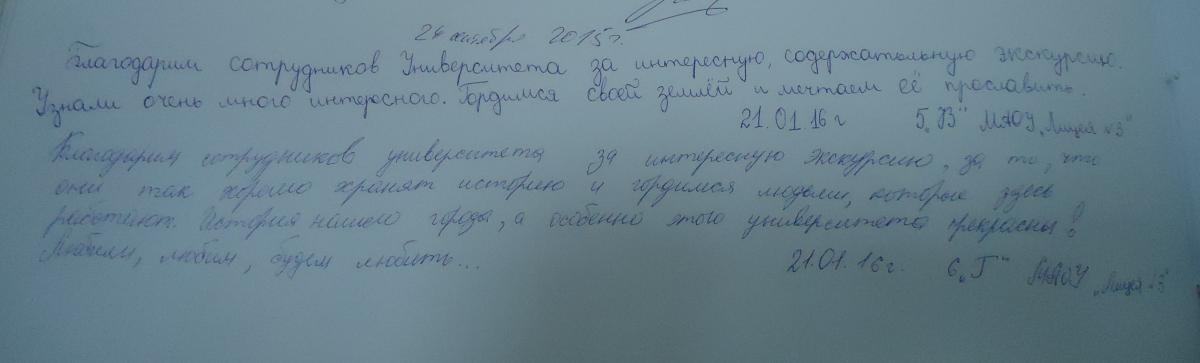 26 октября 2015г.
Благодарим сотрудников Университета за интересную, содержательную экскурсию.
Узнали очень много интересного. Гордимся своей землёй и мечтаем её прославить.
21.01.16 г 5 „В" МАОУ „Лицея №3"
Благодарим сотрудников университета за интересную экскурсию, за то, что
они так хорошо хранят историю и гордимся людьми, которые здесь
работают. История нашего города, а особенно этого университета прекрасны!
Любили, любим, будем любить...
21.01.16г. 6 „Г" МАОУ „Лицея №3"